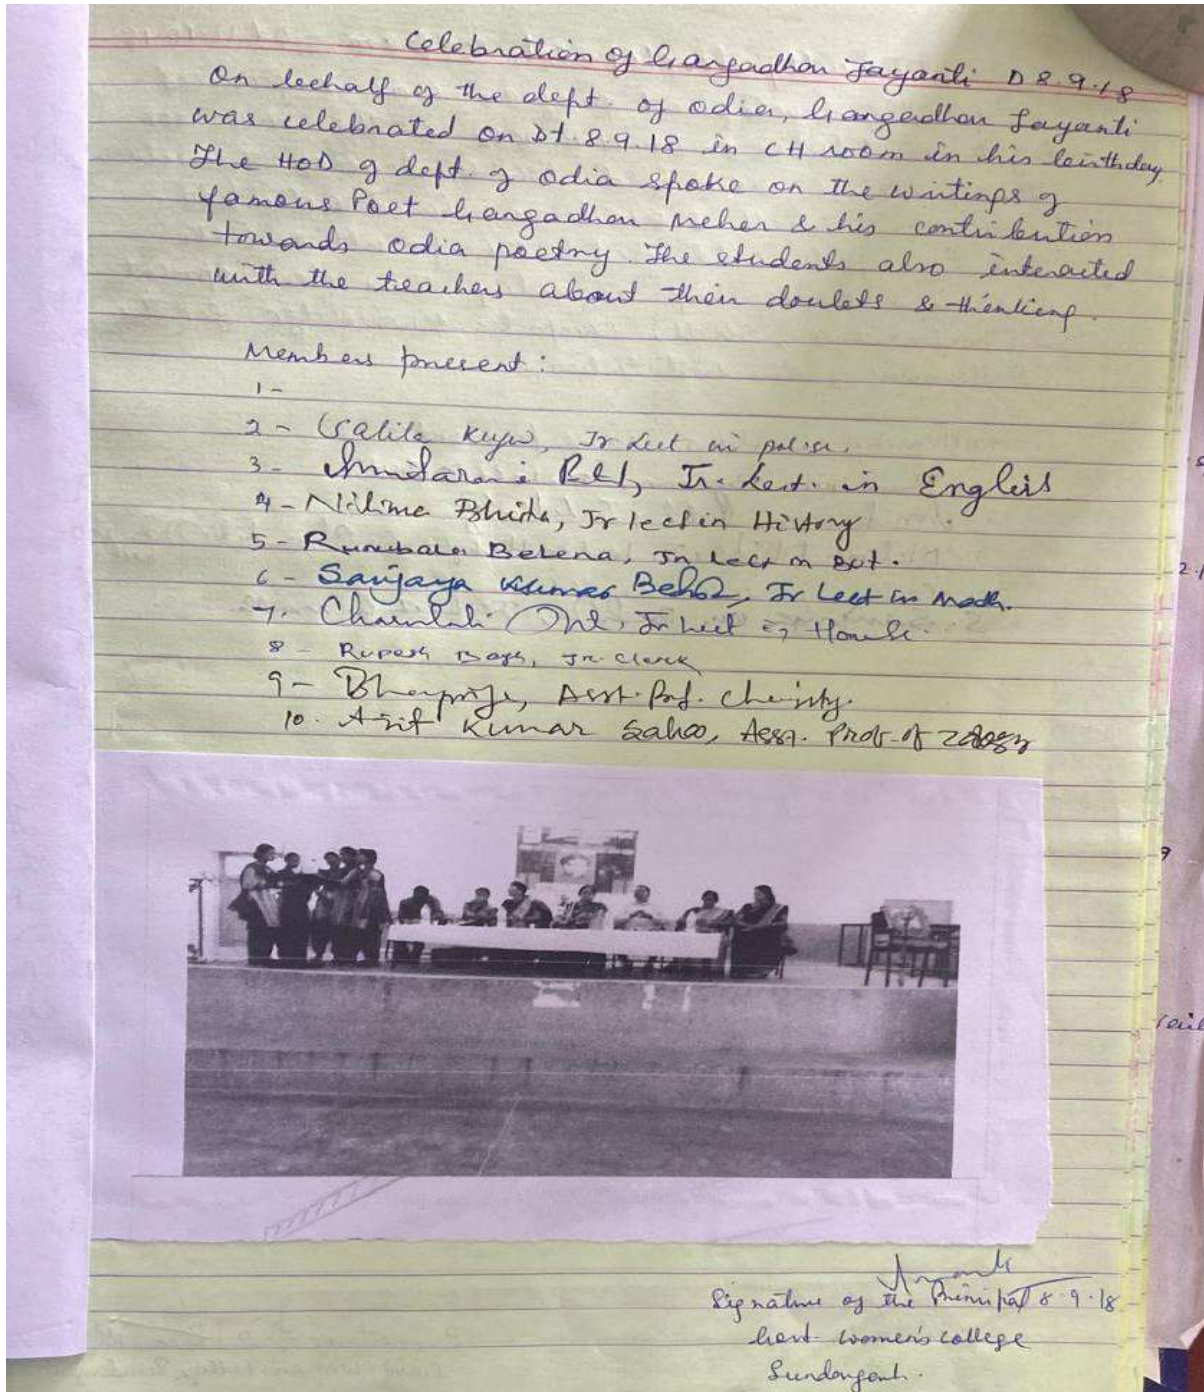 Celebration of Gangadhar Jayanti D 8.9.18
On behalf of the dept. of odia, Gangadhar Jayanti
was celebrated on Dt. 8.9.18 in CH room in his birthday.
The HOD of dept. of odia spoke on the writings of
famous Poet Gangadhar Meher & his contribution
towards odia poetry. The students also interacted
with the teachers about their doubts & thinking.
Members present:
1-
2- Lalita Kujur, Jr Lect in pol.sc.
3- Rani Jr. Lect. in English
4- Nilima Bhitria, Jr lect in History
5- Runubala Behera, Jr Lect in Bot.
6- Sanjaya Kumar Behera, Jr Lect in Math.
7. Jr Lect in
8- Rupesh Bagh, Jr. Clerk
9- Asst. Prof. Chemistry.
10. Asit Kumar Sahoo, Asst. Prof. of Zoology
Signature of the Principal 8.9.18
Govt. women's college
Sundargarh.